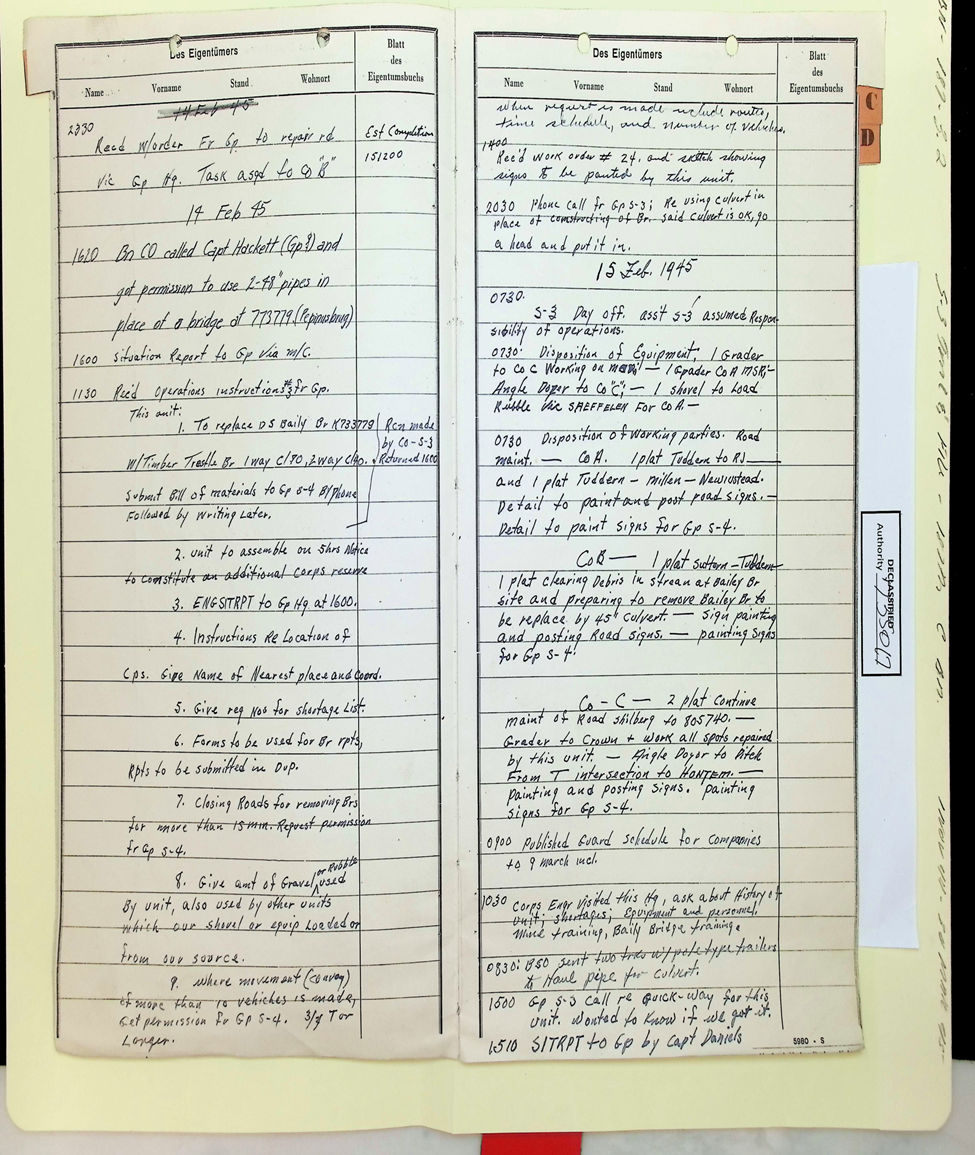 Des Eigentümers
Blatt
des
Eigentumsbuchs
Name Vorname Stand Wohnort
14 Feb 45
2330
Recd w/order Fr Gp. to repair rd
Est Completion
151200
Vic Gp Hq. Task asgd to Co "B"
14 Feb 45
1610 Bn CO called Capt Hackett (Gp3) and
got permission to use 2-48" pipes in
place of a bridge at 773779
1600 Situation Report to Gp Via M/C.
1130 Rec'd Operations instructions #3 fr Gp.
This unit:
1. To replace DS Baily Br K733779
Rcn made
by Co-S-3
Returned 1600
W/Timber Trestle Br 1way Cl70, 2way Cl40.
Submit Bill of materials to Gp S-4 By phone
Followed by Writing Later.
2. unit to assemble on 5hrs Notice
to constitute an additional Corps reserve
3. ENGSITRPT to Gp Hq at 1600.
4. Instructions Re Location of
Cps. Give Name of Nearest place and Coord.
5. Give req Nos for shortage List.
6. Forms to be used for Br rpts,
Rpts to be submitted in Dup.
7. Closing Roads for removing Brs
for more than 15 min. Request permission
fr Gp S-4.
8. Give amt of Gravel or Rubble used
By unit, also used by other units
which our shovel or equip Loaded or
from our source.
9. where movement (convoy)
of more than 10 vehicles is made,
Get permission fr Gp S-4. 3/4 T or
Larger.
Des Eigentümers
Blatt
des
Eigentumsbuchs
Name Vorname Stand Wohnort
when request is made include routes,
time schedule, and number of vehicles.
1400
Rec'd work order # 24. and sketch showing
signs to be painted by this unit.
2030 Phone Call fr Gp S-3; Re using culvert in
place of constructing of Br. Said Culvert is OK, go
a head and put it in.
15 Feb. 1945
0730.
S-3 Day off. ass't S-3 assumed Respon-
sibility of operations.
0730: Disposition of Equipment; 1 Grader
to Co C Working on — 1 Grader Co A MSR;-
Angle Dozer to Co "C"; — 1 shovel to Load
Rubble Vic SAEFFELEN For Co A.—
0730 Disposition of Working parties. Road
maint. — Co A. 1 plat Tuddern to RJ
and 1 plat Tuddern - Millen - Newiustead.
Detail to paint and post road signs. —
Detail to paint signs for Gp S-4.
Co B — 1 plat Suttern - Tuddern
1 plat clearing Debris in stream at Bailey Br
site and preparing to remove Bailey Br to
be replace by 45" Culvert. — Sign painting
and posting Road Signs. — painting Signs
for Gp S-4.
Co-C — 2 plat Continue
maint of Road shilberg to 805740. —
Grader to Crown + Work all spots repaired
by this unit. — Angle Dozor to Ditch
From T intersection to HONTEM. —
painting and posting Signs. painting
signs for Gp S-4.
0900 published Guard Schedule for Companies
to 9 march incl.
1030 Corps Engr Visited this Hq, ask about History of
Unit; shortages; Equipment and personnel,
Mine training, Baily Bridge training.
0830: BSO sent two trks w/pole type trailers
to Haul pipe for Culvert.
1500 Gp S-3 Call re Quick-way for this
Unit. Wanted to Know if we got it.
1510 SITRPT to Gp by Capt Daniels
5980 - S
C
D
DECLASSIFIED
Authority 735017